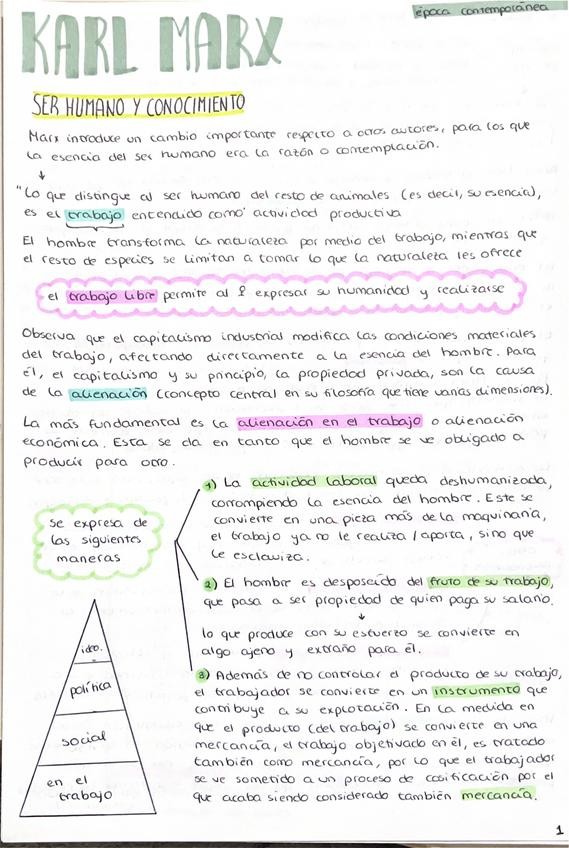 época contemporánea
KARL MARX
SER HUMANO Y CONOCIMIENTO
Marx introduce un cambio importante respecto a otros autores, para los que
la esencia del ser humano era la razón o contemplación.
↓
"Lo que distingue al ser humano del resto de animales (es decir, su esencia),
es el trabajo entendido como actividad productiva
El hombre transforma la naturaleza por medio del trabajo, mientras que
el resto de especies se limitan a tomar lo que la naturaleza les ofrece
el trabajo libre permite al expresar su humanidad y realizarse
Observa que el capitalismo industrial modifica las condiciones materiales
del trabajo, afectando directamente a la esencia del hombre. Para
él, el capitalismo y su principio, la propiedad privada, son la causa
de la alienación (concepto central en su filosofía que tiene varias dimensiones).
La más fundamental es la alienación en el trabajo o alienación
económica. Esta se da en tanto que el hombre se ve obligado a
producir para otro.
se expresa de
las siguientes
maneras
1) La actividad laboral queda deshumanizada,
corrompiendo la esencia del hombre. Este se
convierte en una pieza más de la maquinaria,
el trabajo ya no le realiza / aporta, sino que
le esclaviza.
2) El hombre es desposeído del fruto de su trabajo,
que pasa a ser propiedad de quien paga su salario.
↓
lo que produce con su esfuerzo se convierte en
algo ajeno y extraño para él.
3) Además de no controlar el producto de su trabajo,
el trabajador se convierte en un instrumento que
contribuye a su explotación. En la medida en
que el producto (del trabajo) se convierte en una
mercancía, el trabajo objetivado en él, es tratado
también como mercancía, por lo que el trabajador
se ve sometido a un proceso de cosificación por el
que acaba siendo considerado también mercancía.
ideo.
política
social
en el
trabajo
1